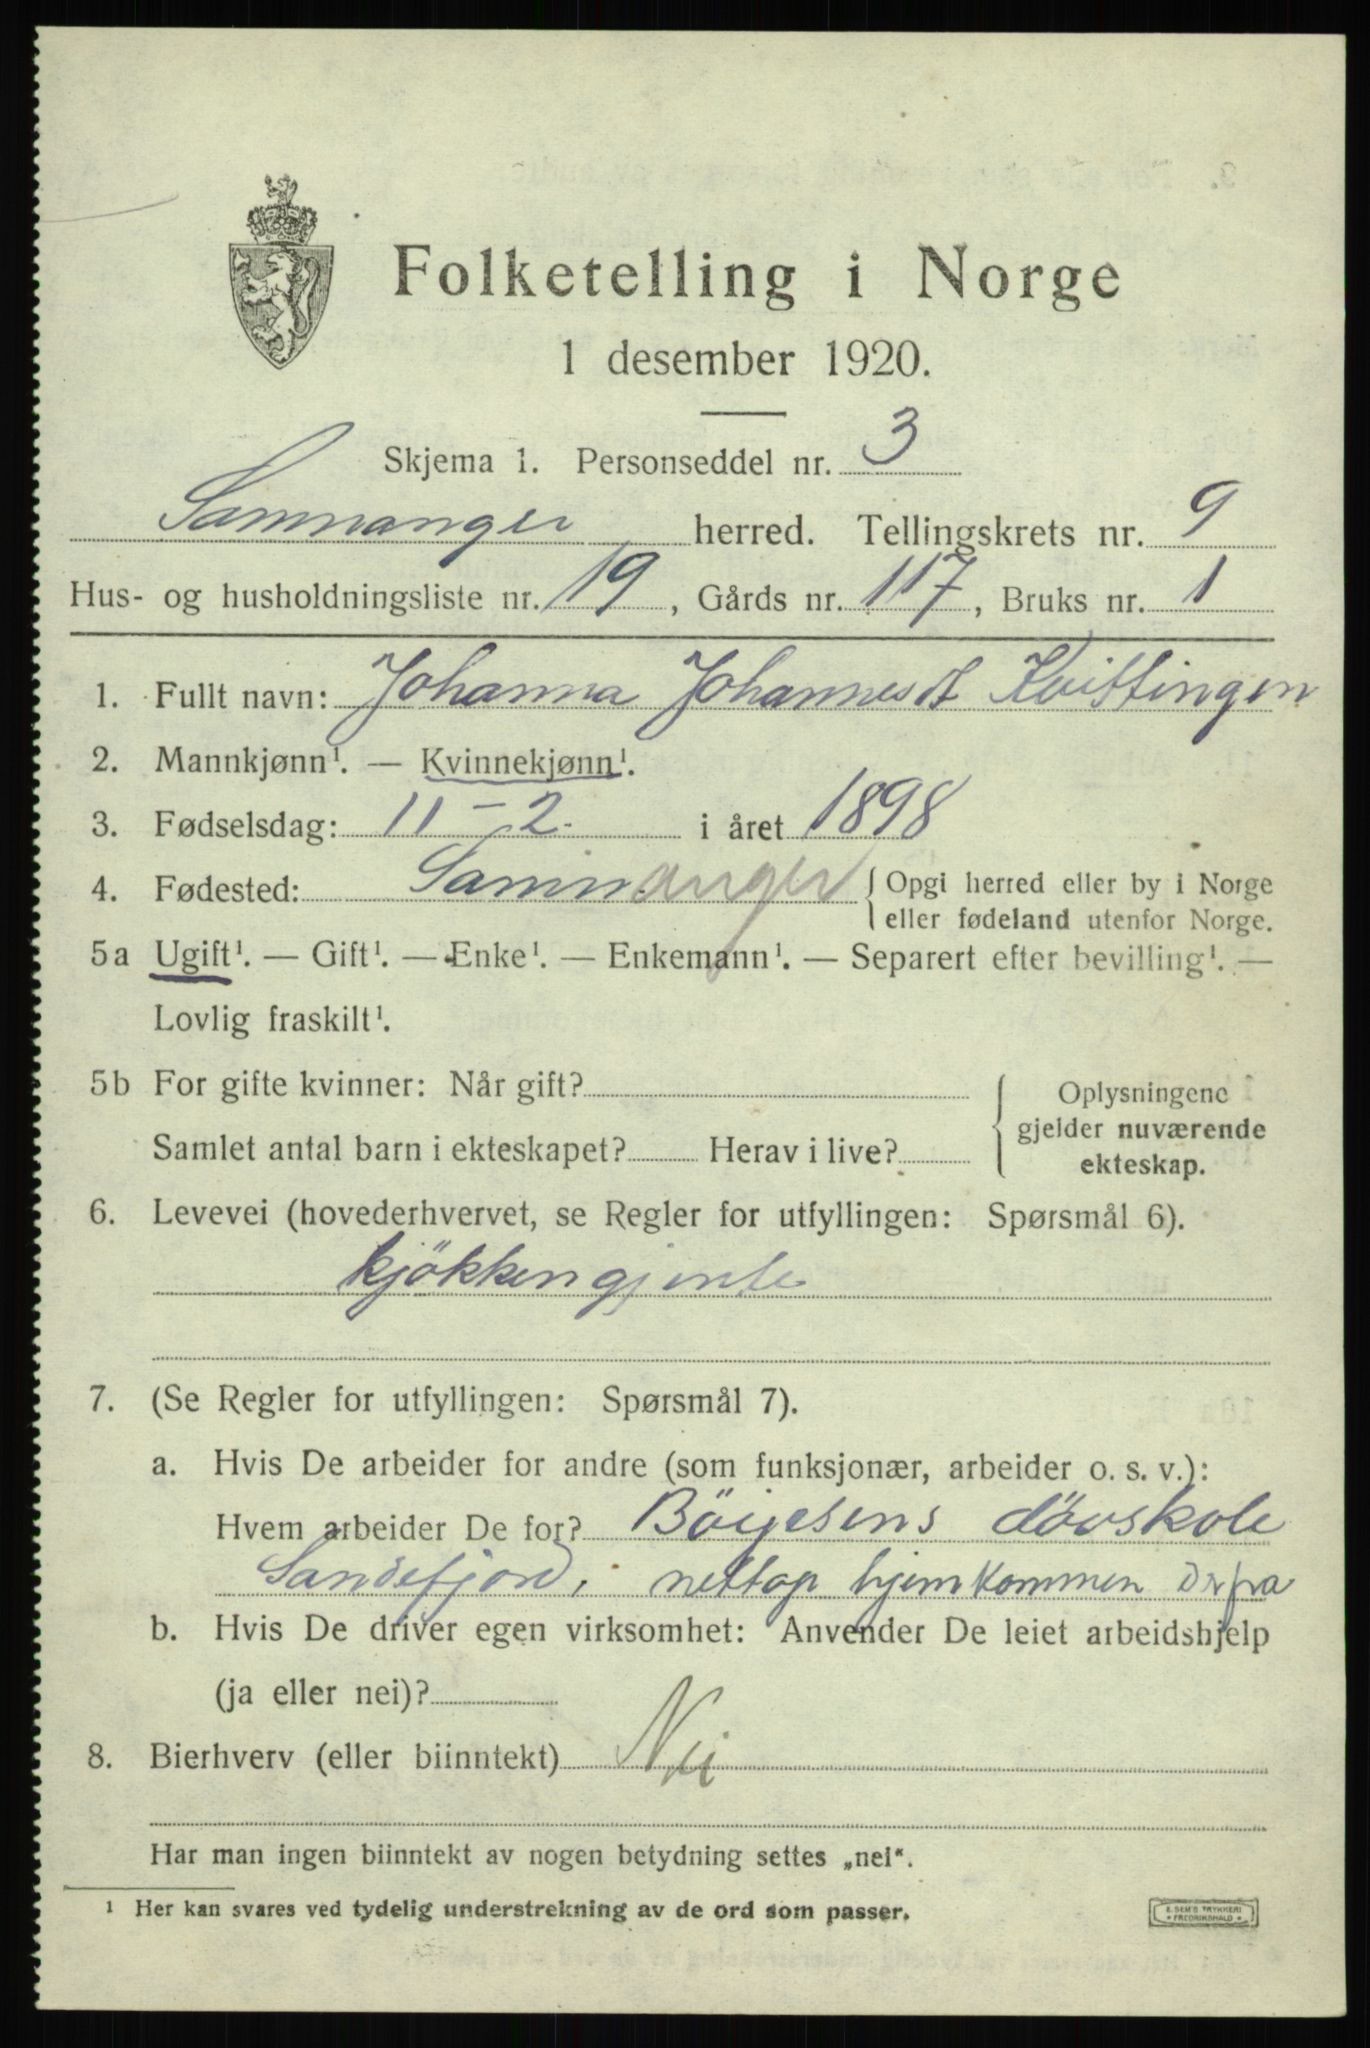 Folketelling i Norge
1 desember 1920.
Skjema 1. Personseddel nr. 3
Samnanger herred. Tellingskrets nr. 9
Hus- og husholdningsliste nr. 19, Gårds nr. 117, Bruks nr. 1
1. Fullt navn: Johanna Johannesdt Kvittingen
2. Mannkjønn¹. — Kvinnekjønn¹.
3. Fødselsdag: 11 – 2. i året 1898
4. Fødested: Samnanger { Opgi herred eller by i Norge
eller fødeland utenfor Norge.
5a Ugift¹. — Gift¹. — Enke¹. — Enkemann¹. — Separert efter bevilling¹. —
Lovlig fraskilt¹.
5b For gifte kvinner: Når gift?
Samlet antal barn i ekteskapet? Herav i live?
Oplysningene
gjelder nuværende
ekteskap.
6. Levevei (hovederhvervet, se Regler for utfyllingen: Spørsmål 6).
kjökkengjente
7. (Se Regler for utfyllingen: Spørsmål 7).
a. Hvis De arbeider for andre (som funksjonær, arbeider o. s. v.):
Hvem arbeider De for? Böigesens dövskole
Sandefjord, nettop hjemkommen derfra
b. Hvis De driver egen virksomhet: Anvender De leiet arbeidshjelp
(ja eller nei)?
8. Bierhverv (eller biinntekt) Nei
Har man ingen biinntekt av nogen betydning settes „nei“.
¹ Her kan svares ved tydelig understrekning av de ord som passer.
E. SEM'S TRYKKERI
FREDRIKSHALD